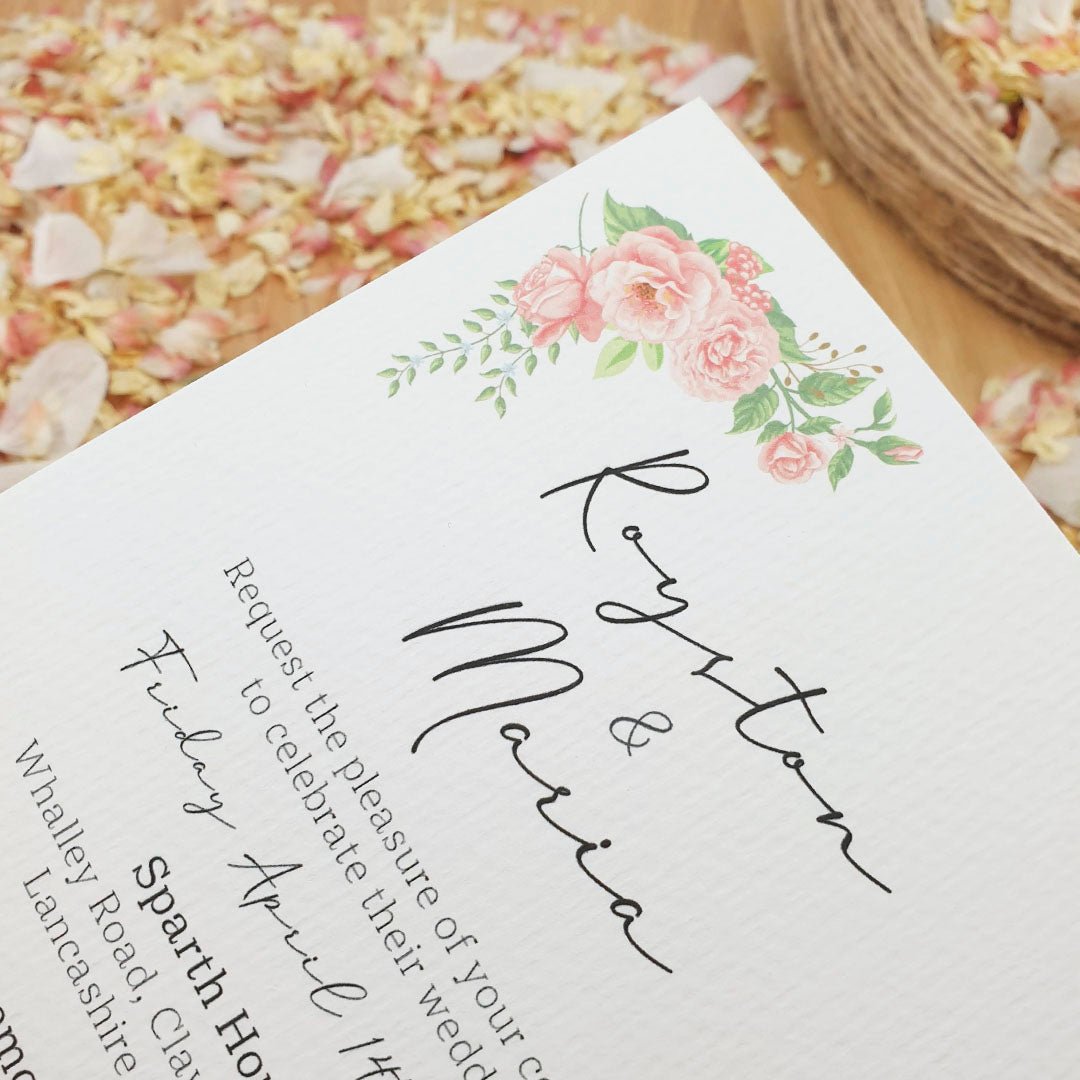 Royston
&
Maria
Request the pleasure of your
to celebrate their
Friday April 14
Sparth
Whalley Road,
Lancashire